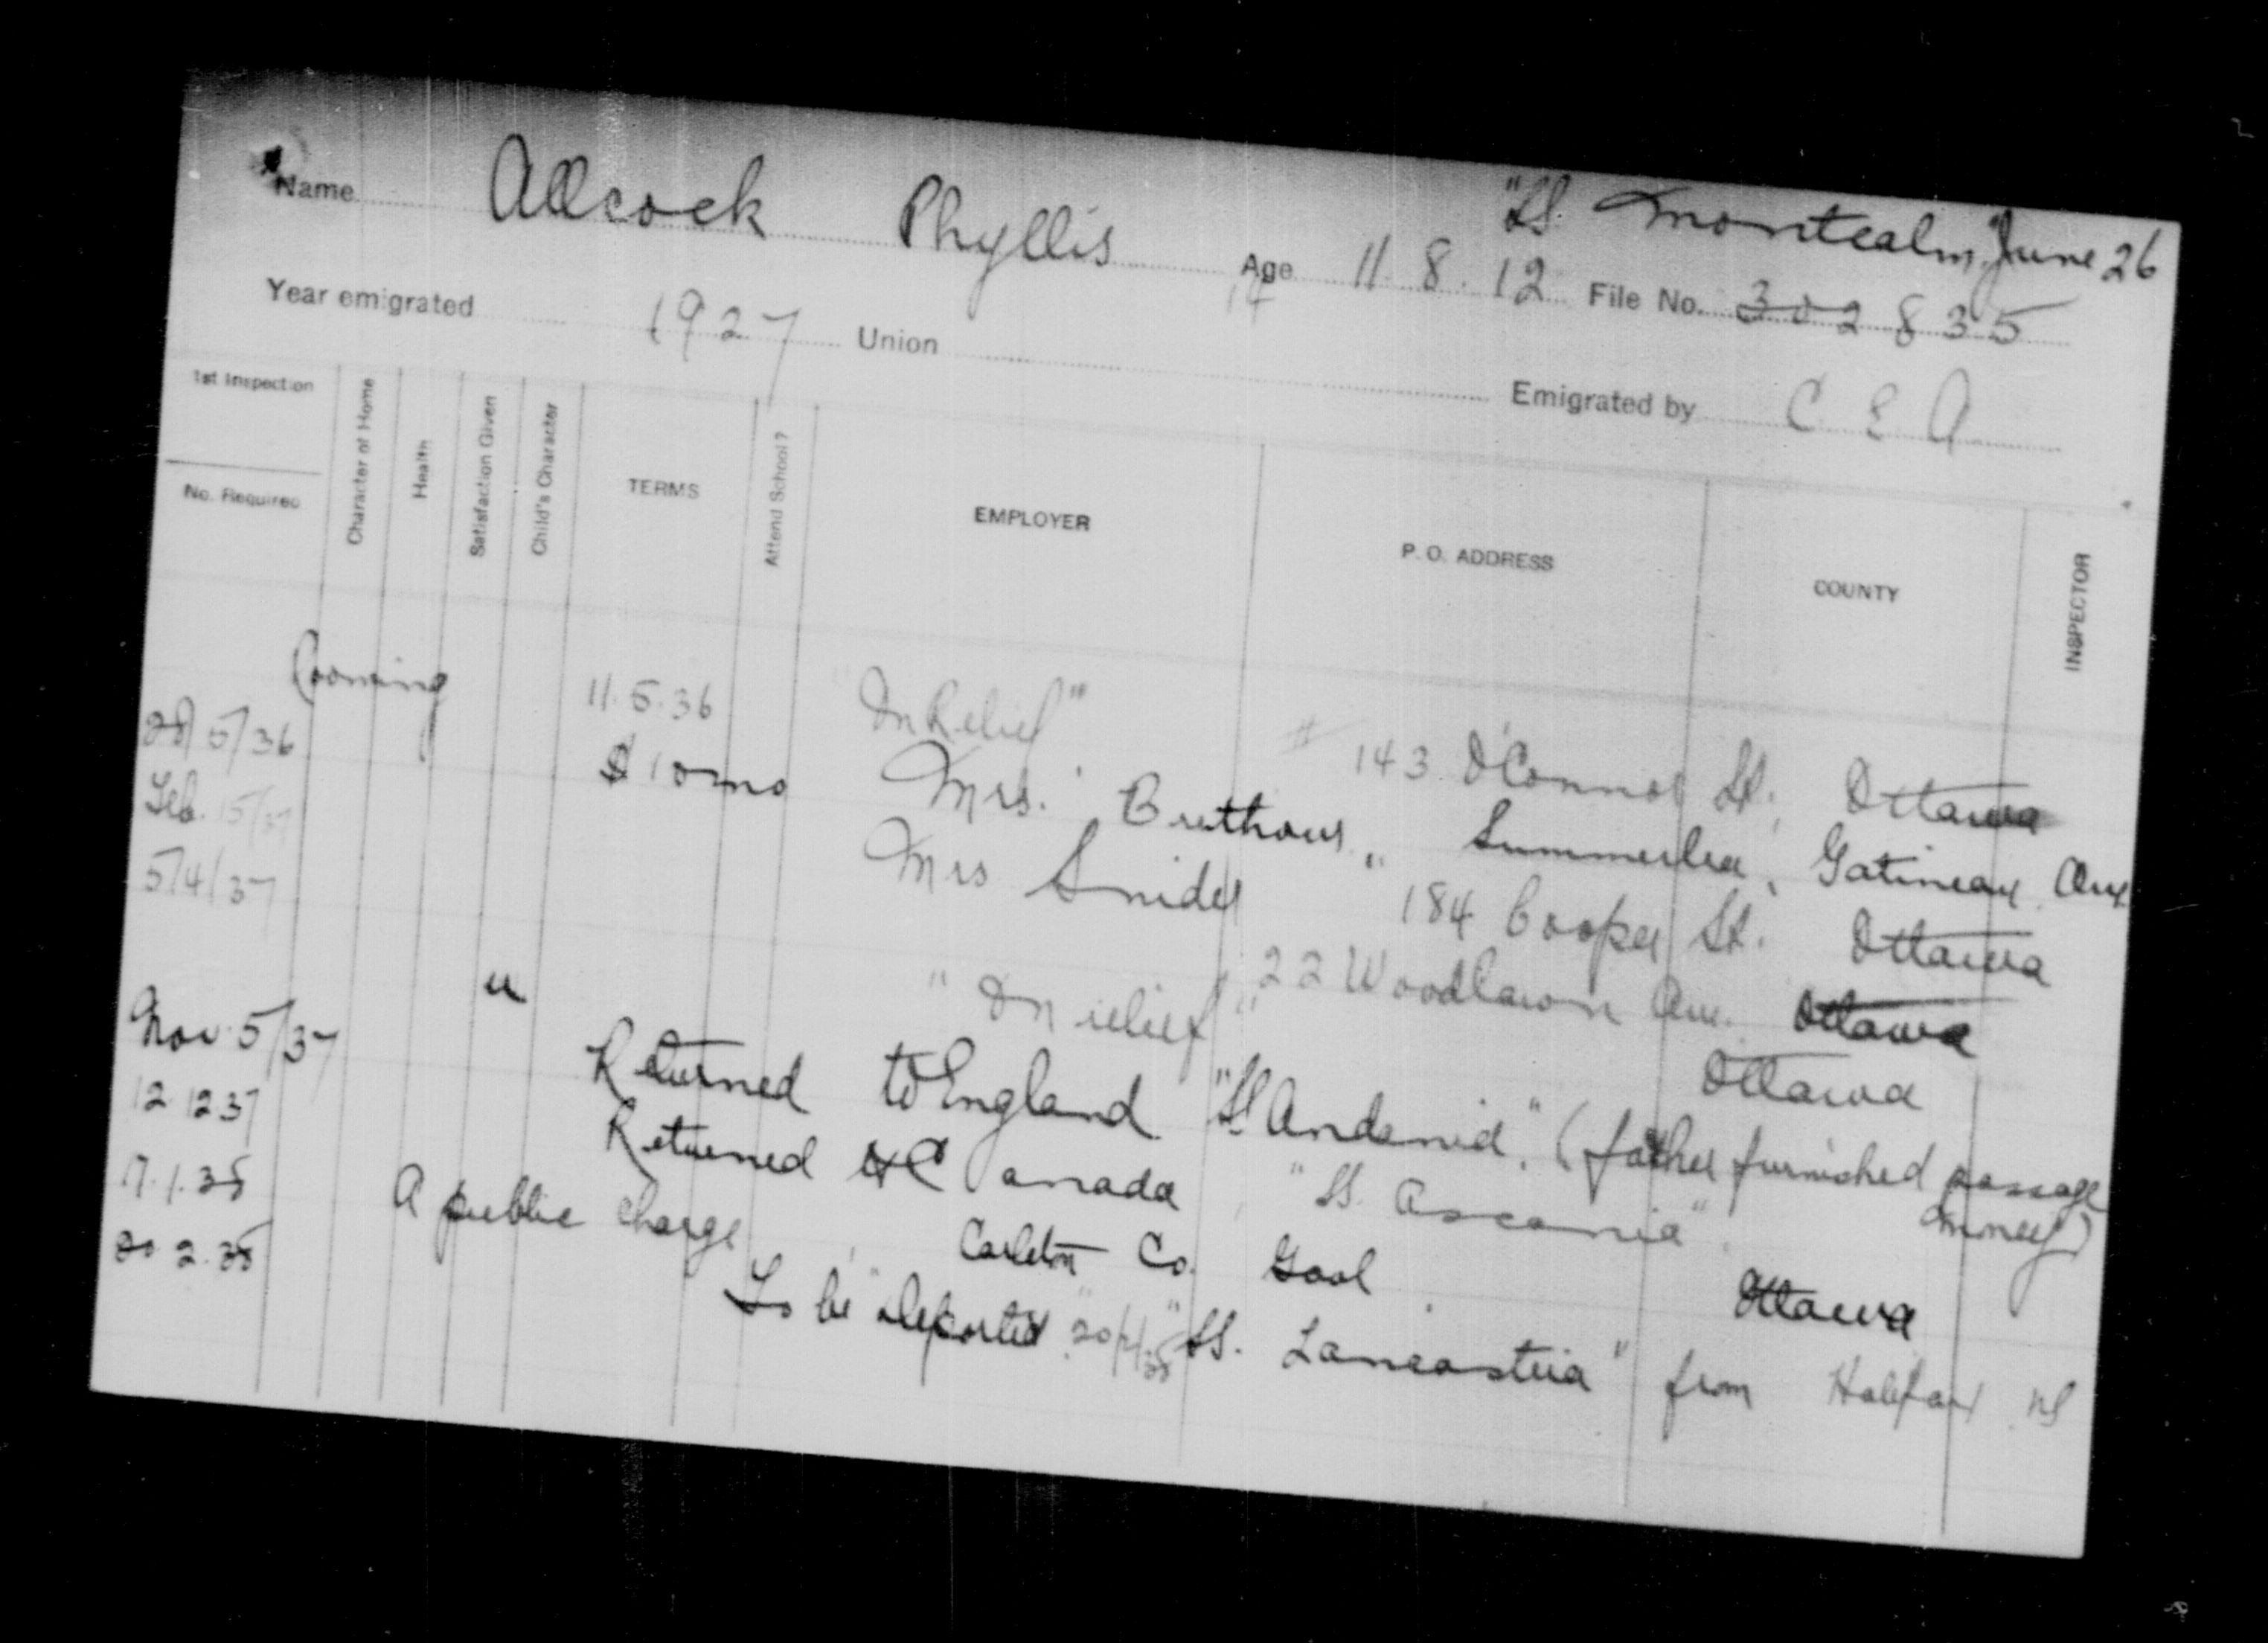 "SS. Montcalm June 26
Name Allcock Phyllis Age 11. 8. 12 File No. 302835
14
Year emigrated 1927 Union Emigrated by C E A
1st Inspection
No. Required
Character of Home
Health
Satisfaction Given
Child's Character
TERMS
Attend School?
EMPLOYER
P. O. ADDRESS
COUNTY
INSPECTOR
Rooming 11.5.36 "On Relief" 143 O'Connor St. Ottawa
28/5/36 $10 mo Mrs. Summerlea, Gatineau
Feb. 15/37 Mrs Snider 184 Cooper St. Ottawa
5/4/37 22 Woodlawn Ave. Ottawa
" "On relief" Ottawa
Nov. 5/37 Returned to England "SS. " (father furnished passage money)
12 12 37 Returned to Canada "SS. Ascania"
17.1.38 A public charge Carleton Co. Gaol Ottawa
20 2.38 To be "deported" "SS. Lancastria" from Halifax NS